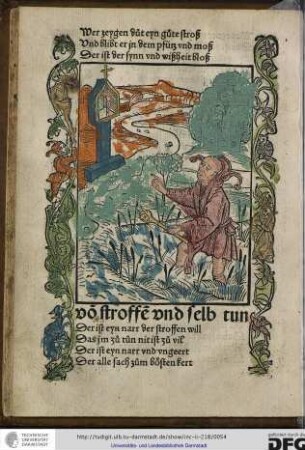 Wer zeygen důt eyn gůte stroß
Vnd blibt er in dem pfůtz vnd moß
Der ist der synn vnd wißheit bloß
vō stroffē vnd selb tun
Der ist eyn narr der stroffen will
Das jm zů tůn nit ist zů vil
Der ist eyn narr vnd vngeert
Der alle sach zům bösten kert
TECHNISCHE
UNIVERSITÄT
DARMSTADT
http://tudigit.ulb.tu-darmstadt.de/show/inc-ii-218/0054
Universitäts- und Landesbibliothek Darmstadt
DFG